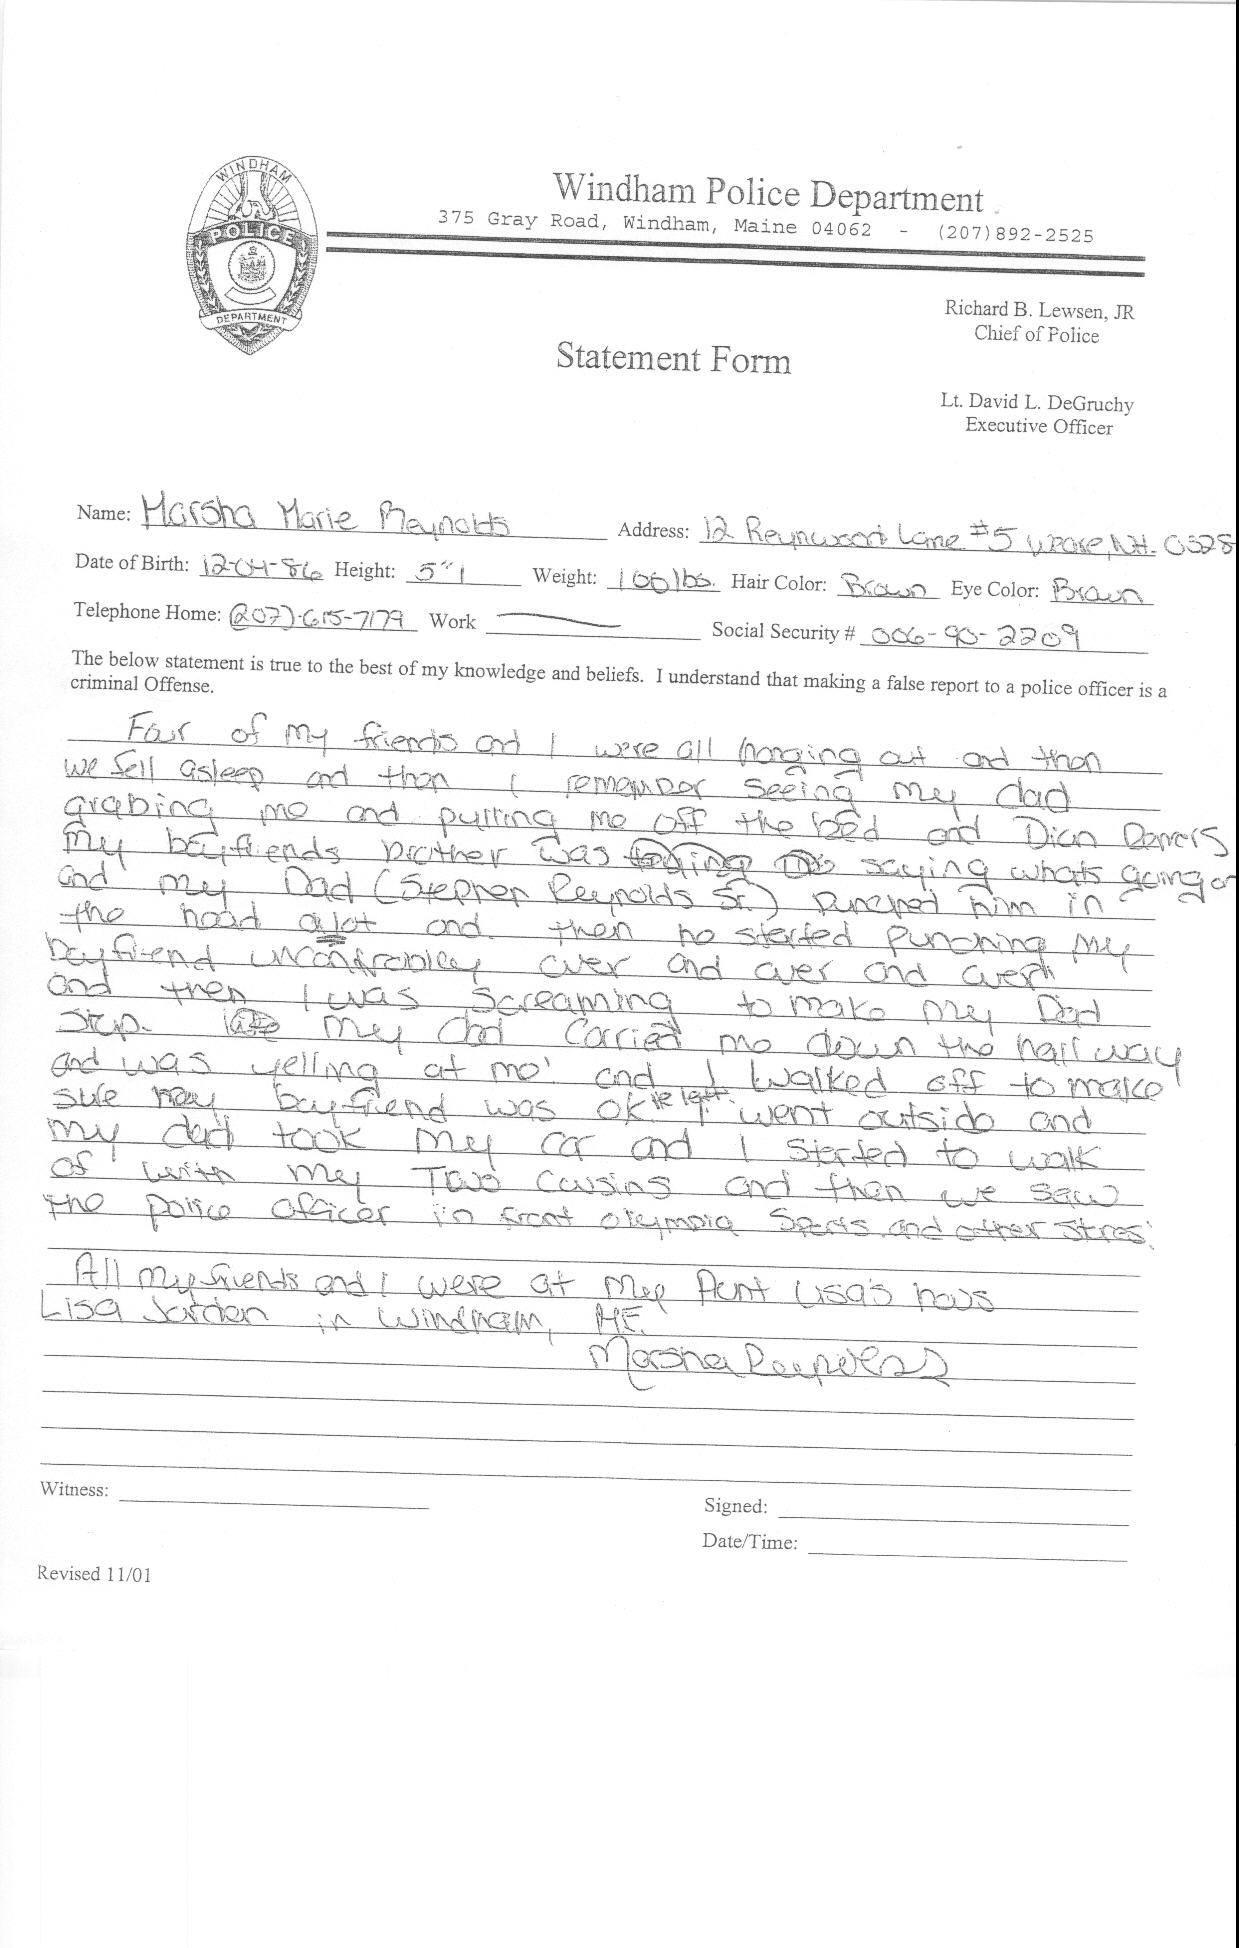 WINDHAM
POLICE
DEPARTMENT
Windham Police Department
375 Gray Road, Windham, Maine 04062 - (207)892-2525
Richard B. Lewsen, JR
Chief of Police
Statement Form
Lt. David L. DeGruchy
Executive Officer
Name: Marsha Marie Reynolds Address: 12 Reynwood Lane #5 Weare, NH. 0328
Date of Birth: 12-04-86 Height: 5"1 Weight: 100 lbs. Hair Color: Brown Eye Color: Brown
Telephone Home: (207)-615-7179 Work Social Security # 006-90-2209
The below statement is true to the best of my knowledge and beliefs. I understand that making a false report to a police officer is a
criminal Offense.
Four of my friends and I were all hanging out and then
we fell asleep and then I remember seeing my dad
grabing me and pulling me off the bed and Dian
my boyfriends brother was saying whats going on
and my Dad (Stephen Reynolds Sr.) punched him in
the head alot and then he started punching my
boyfriend uncontrobley over and over and over
and then I was screaming to make my Dad
stop. my dad carried me down the hall way
and was yelling at me and I walked off to make
sure my boyfriend was ok He left. went outside and
my dad took my car and I started to walk
of with my Two cousins and then we saw
the police officer in front olympia Sports and other stores.
All my friends and I were at my Aunt Lisa's hous
Lisa Jordan in Windham, ME.
Marsha Reynolds
Witness:
Signed:
Date/Time:
Revised 11/01